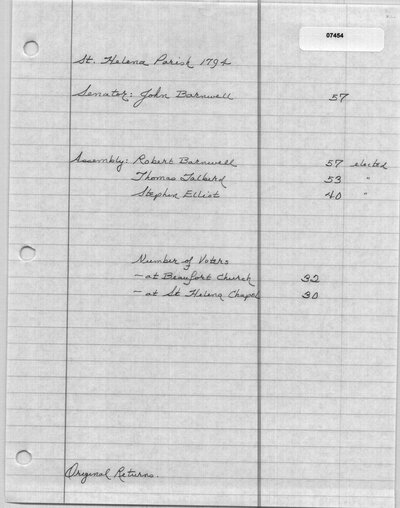 07454
St. Helena Parish 1794
Senator: John Barnwell 57
Assembly: Robert Barnwell 57 elected
Thomas Talberd 53 "
Stephen Elliot 40 "
Number of Voters
- at Beaufort Church 32
- at St Helena Chapel 30
Original Returns.